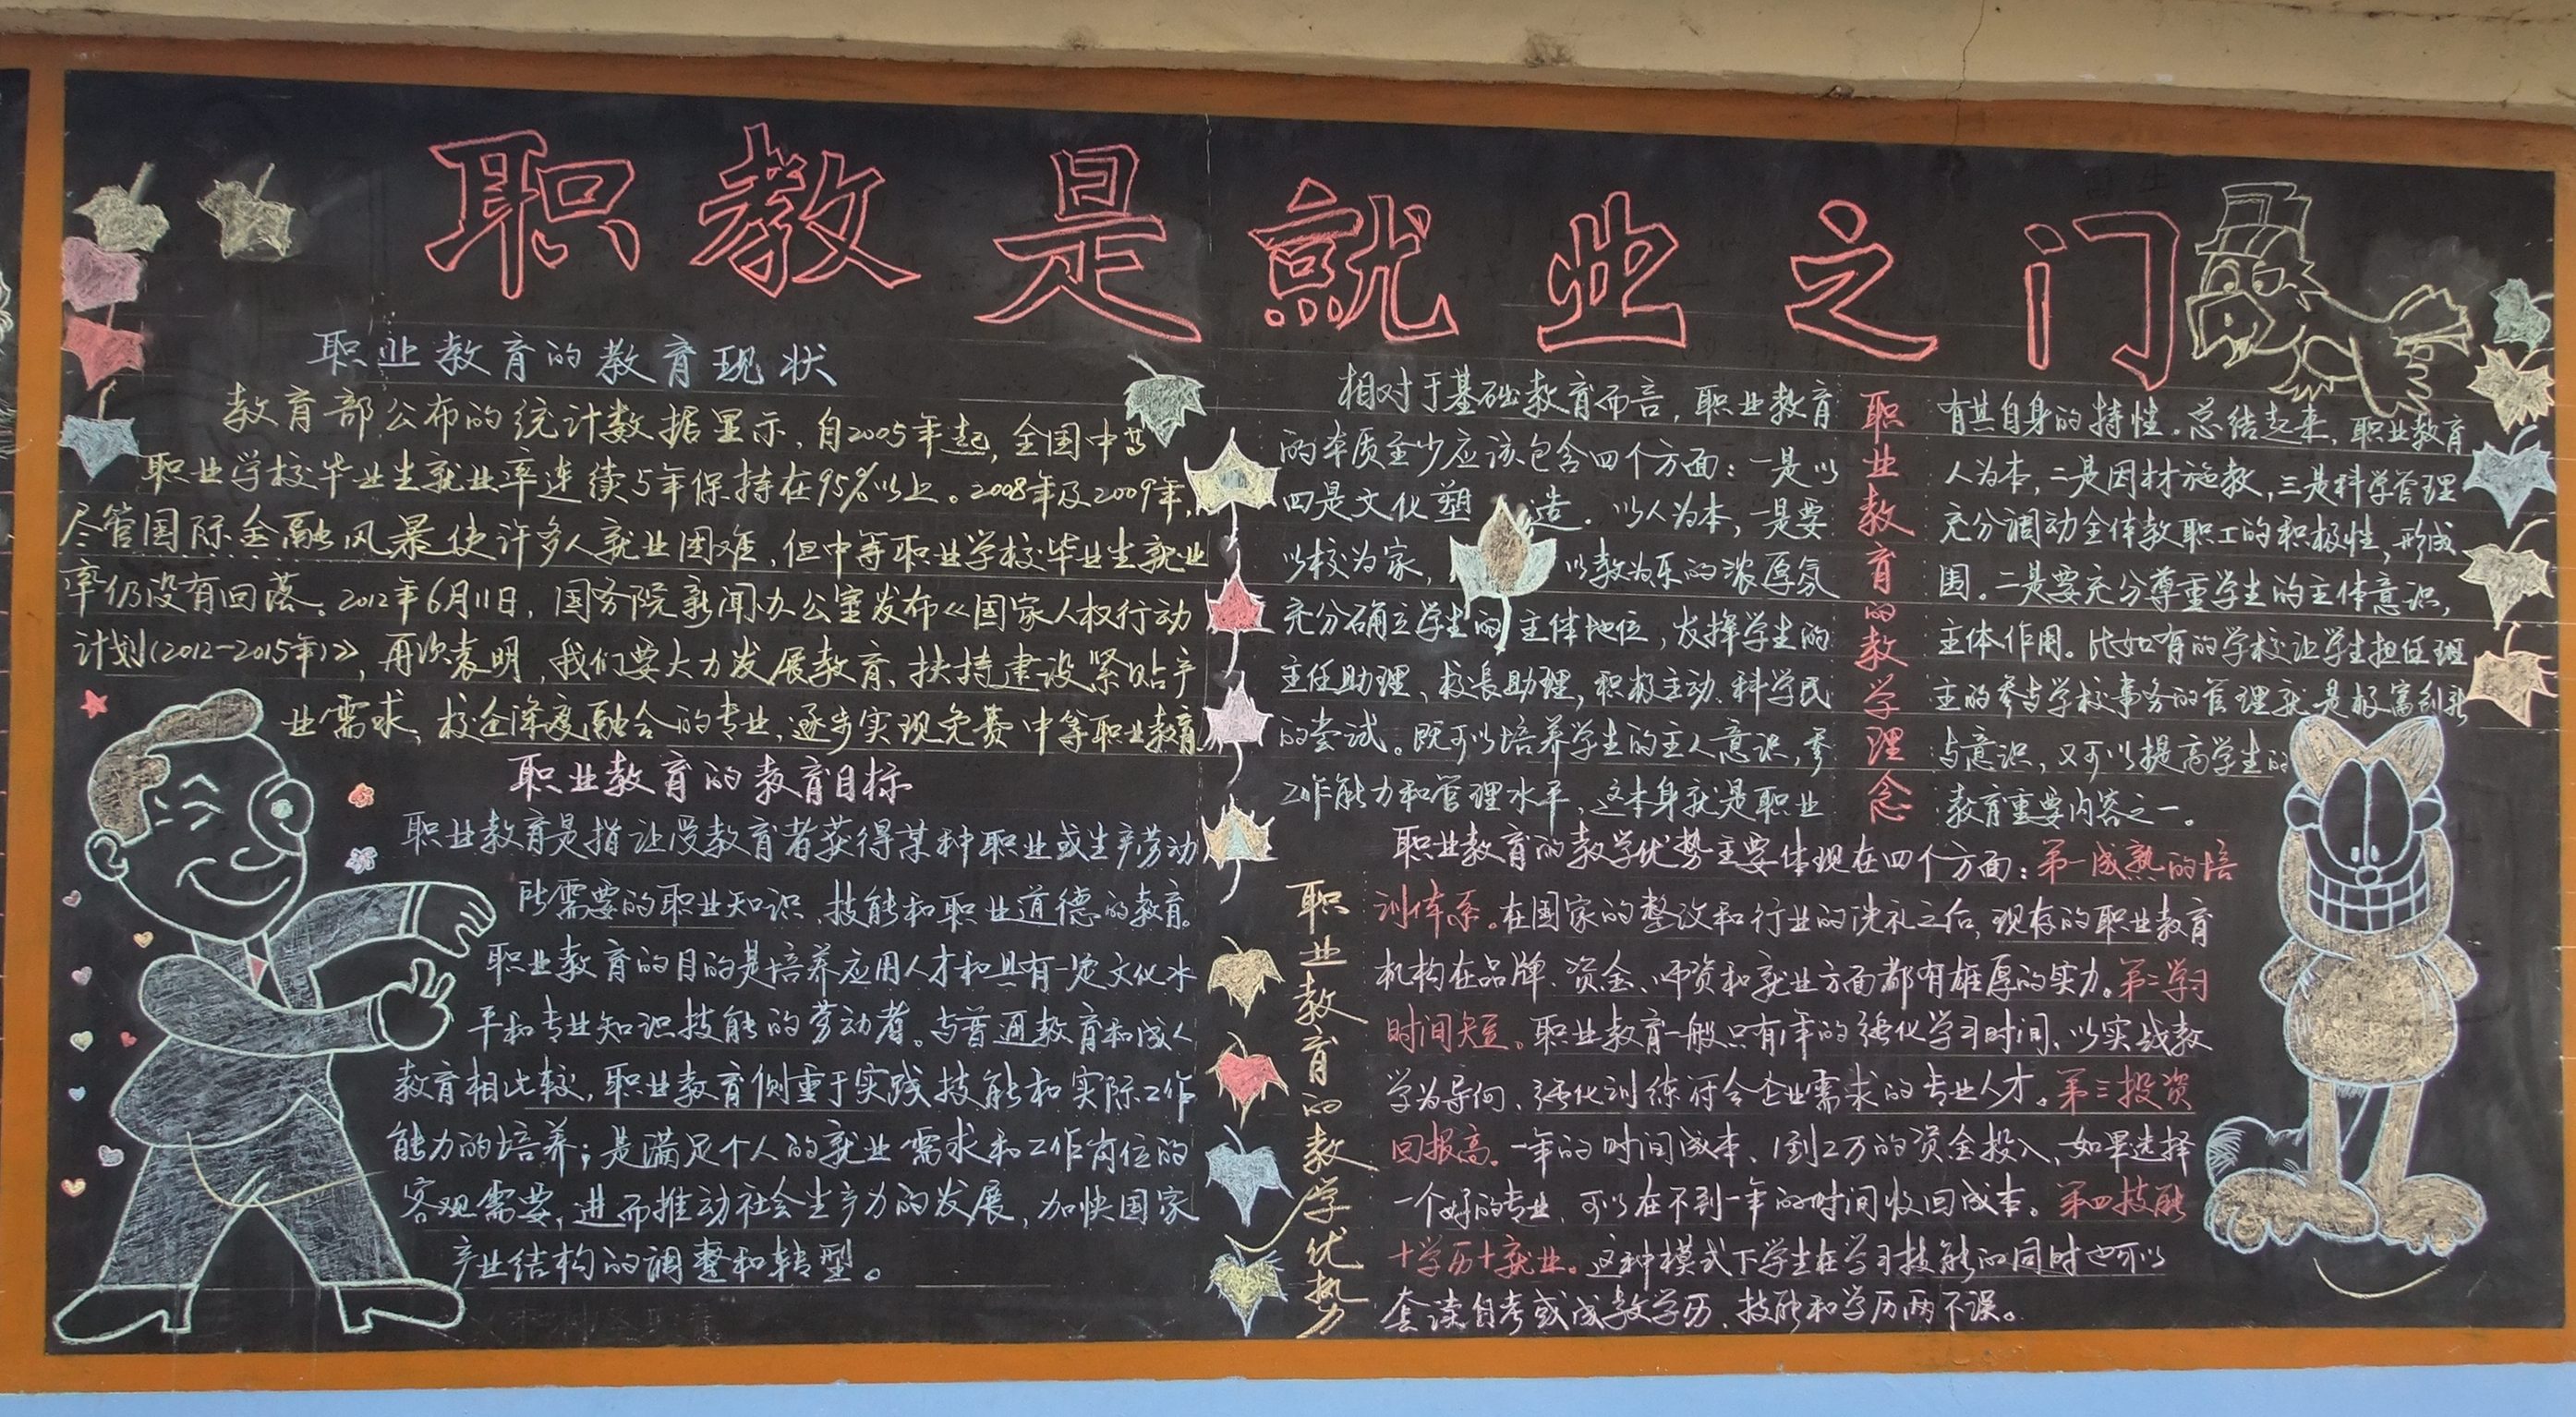 职教是就业之门
职业教育的教育现状
教育部公布的统计数据显示,自2005年起,全国中等
职业学校毕业生就业率连续5年保持在95%以上。2008年及2009年,
尽管国际金融风暴使许多人就业困难,但中等职业学校毕业生就业
率仍没有回落。2012年6月11日,国务院新闻办公室发布《国家人权行动
计划(2012-2015年)》,再次表明,我们要大力发展教育、扶持建设紧贴产
业需求、校企深度融合的专业,逐步实现免费中等职业教育
职业教育的教育目标
职业教育是指让受教育者获得某种职业或生产劳动
所需要的职业知识、技能和职业道德的教育。
职业教育的目的是培养应用人才和具有一定文化水
平和专业知识技能的劳动者。与普通教育和成人
教育相比较,职业教育侧重于实践技能和实际工作
能力的培养;是满足个人的就业需求和工作岗位的
客观需要,进而推动社会生产力的发展,加快国家
产业结构的调整和转型。
职业教育的教学理念
相对于基础教育而言,职业教育 有其自身的特性。总结起来,职业教育
的本质至少应该包含四个方面:一是以 人为本,二是因材施教,三是科学管理
四是文化塑造。以人为本,一是要 充分调动全体教职工的积极性,形成
以校为家,以教为乐的浓厚氛 围。二是要充分尊重学生的主体意识,
充分确立学生的主体地位,发挥学生的 主体作用。比如有的学校让学生担任班
主任助理、校长助理,积极主动、科学民 主的参与学校事务的管理就是极富创新
的尝试。既可以培养学生的主人意识,参 与意识,又可以提高学生的
工作能力和管理水平,这本身就是职业 教育重要内容之一。
职业教育的教学优势
职业教育的教学优势主要体现在四个方面:第一成熟的培
训体系。在国家的整改和行业的洗礼之后,现存的职业教育
机构在品牌、资金、师资和就业方面都有雄厚的实力。第二学习
时间短。职业教育一般只有1年的强化学习时间、以实战教
学为导向、强化训练符合企业需求的专业人才。第三投资
回报高。一年的时间成本、1到2万的资金投入,如果选择
一个好的专业,可以在不到一年的时间收回成本。第四技能
+学历+就业。这种模式下学生在学习技能的同时也可以
套读自考或成教学历、技能和学历两不误。